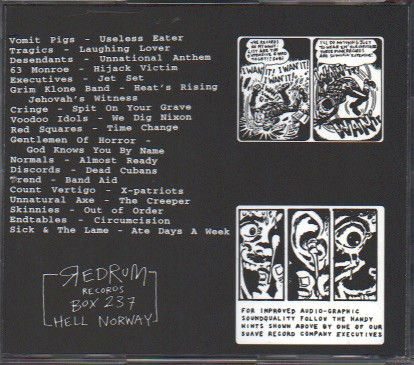 Vomit Pigs - Useless Eater
Tragics - Laughing Lover
Desendants - Unnational Anthem
63 Monroe - Hijack Victim
Executives - Jet Set
Grim Klone Band - Heat's Rising
Jehovah's Witness
Cringe - Spit On Your Grave
Voodoo Idols - We Dig Nixon
Red Squares - Time Change
Gentlemen Of Horror -
God Knows You By Name
Normals - Almost Ready
Discords - Dead Cubans
Trend - Band Aid
Count Vertigo - X-patriots
Unnatural Axe - The Creeper
Skinnies - Out of Order
Endtables - Circumcision
Sick & The Lame - Ate Days A Week
REDRUM
RECORDS
BOX 237
HELL NORWAY
I WANT IT! I WANT IT!
I WANT IT!
FOR IMPROVED AUDIO-GRAPHIC
SOUNDQUALITY FOLLOW THE HANDY
HINTS SHOWN ABOVE BY ONE OF OUR
SUAVE RECORD COMPANY EXECUTIVES